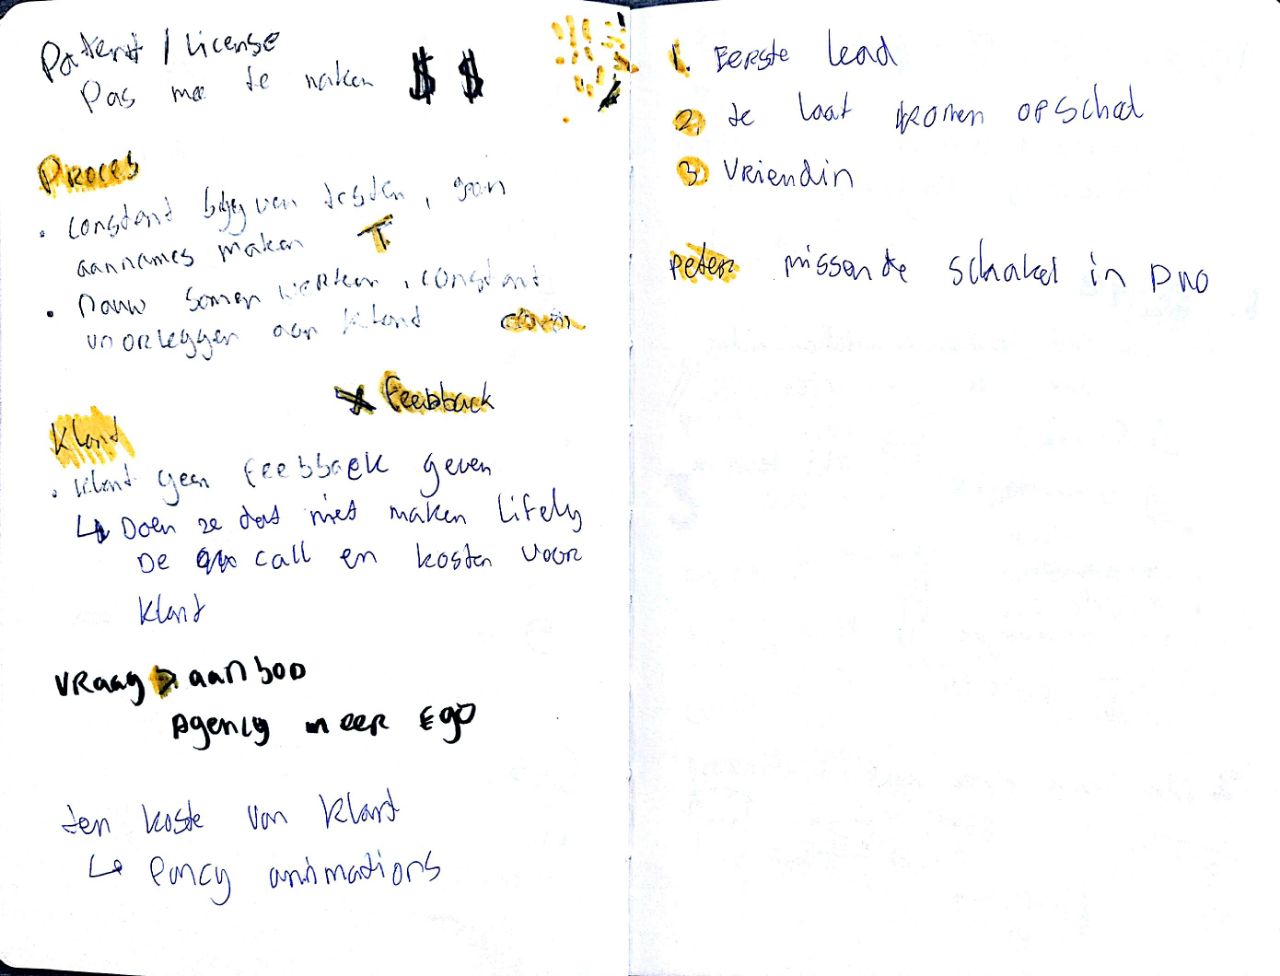 Patent / License
Pas mee te maken $ $
Proces
• constant blijven testen, geen
aannames maken T.
• nauw samen werken, constant
voorleggen aan klant
Feebback
Klant
• klant geen feebback geven
↳ Doen ze dat niet maken
De call en kosten voor
klant
VRaag > aanbod
Agency meer Ego
ten koste van klant
↳ fancy animations
1. Eerste lead
2. te laat komen opschol
3. Vriendin
Peter missende schakel in DUO